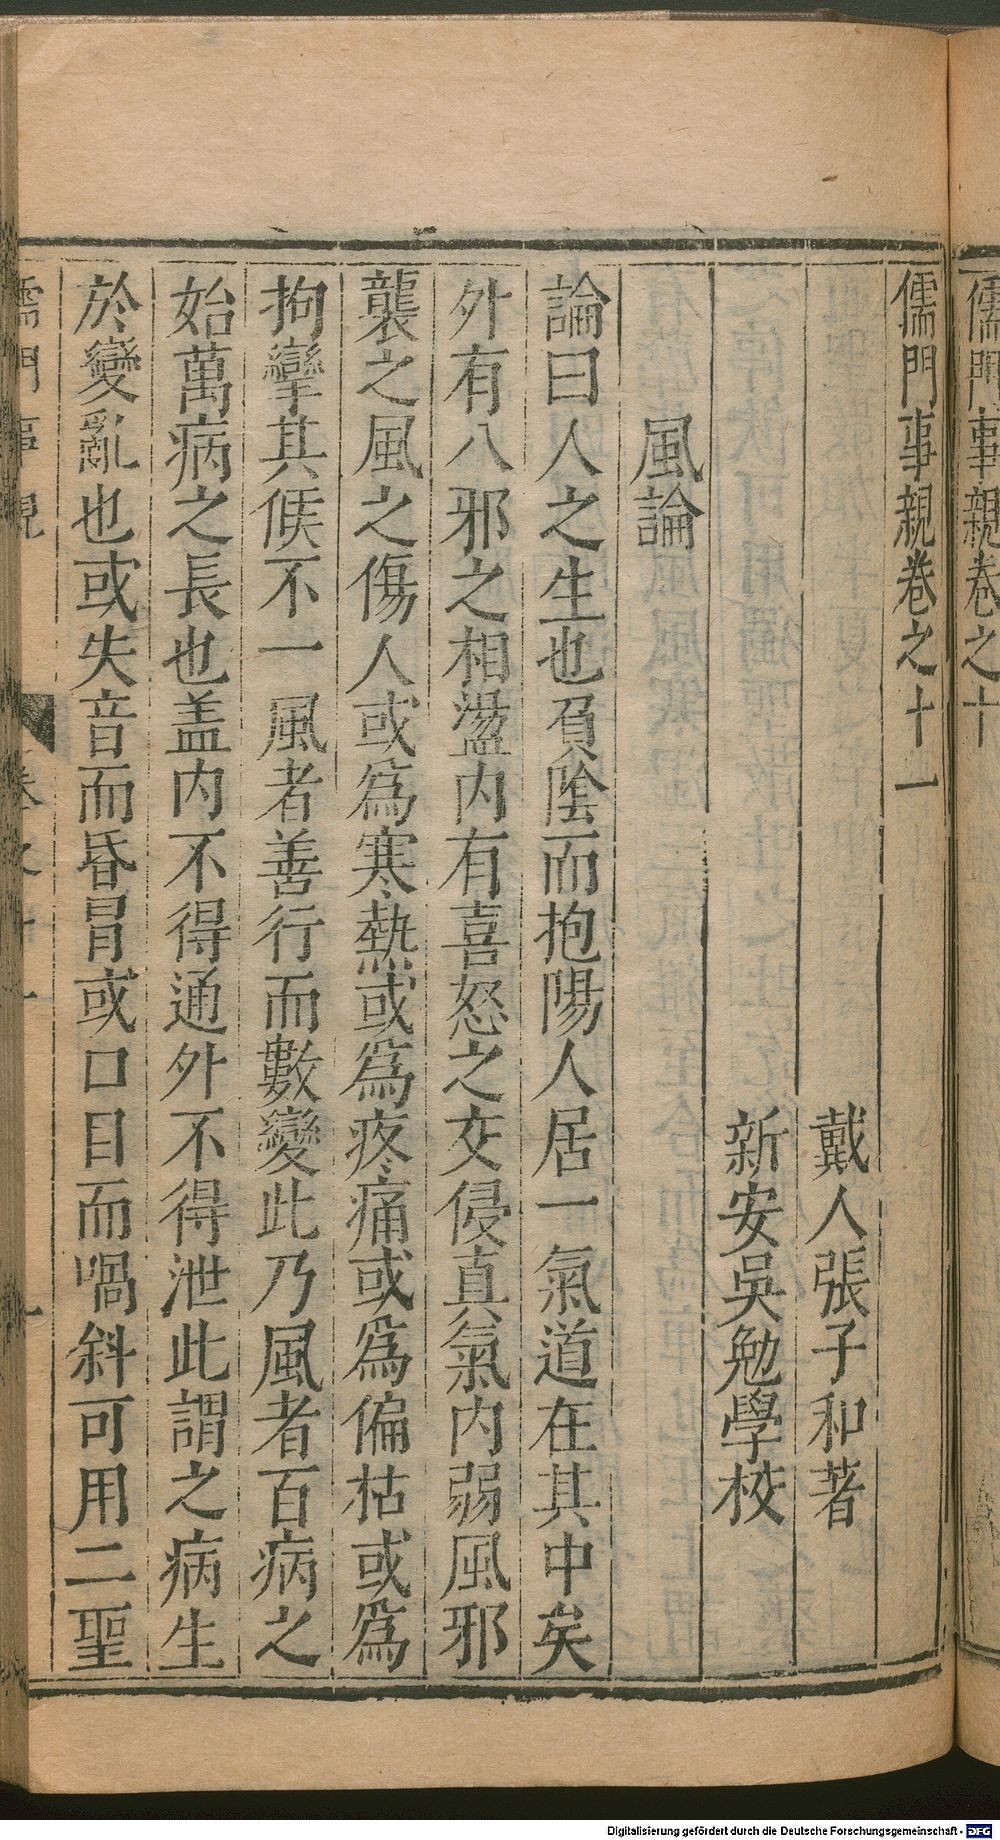 儒門事親卷之十
儒門事親卷之十一
戴人張子和著
新安吳勉學校
風論
論曰人之生也負陰而抱陽人居一氣道在其中矣
外有八邪之相盪内有喜怒之交侵真氣内弱風邪
襲之風之傷人或爲寒熱或爲疼痛或爲偏枯或爲
拘攣其候不一風者善行而數變此乃風者百病之
始萬病之長也盖内不得通外不得泄此謂之病生
於變亂也或失音而昏冒或口目而喎斜可用二聖
儒門事親 卷之十一 一
Digitalisierung gefördert durch die Deutsche Forschungsgemeinschaft - DFG